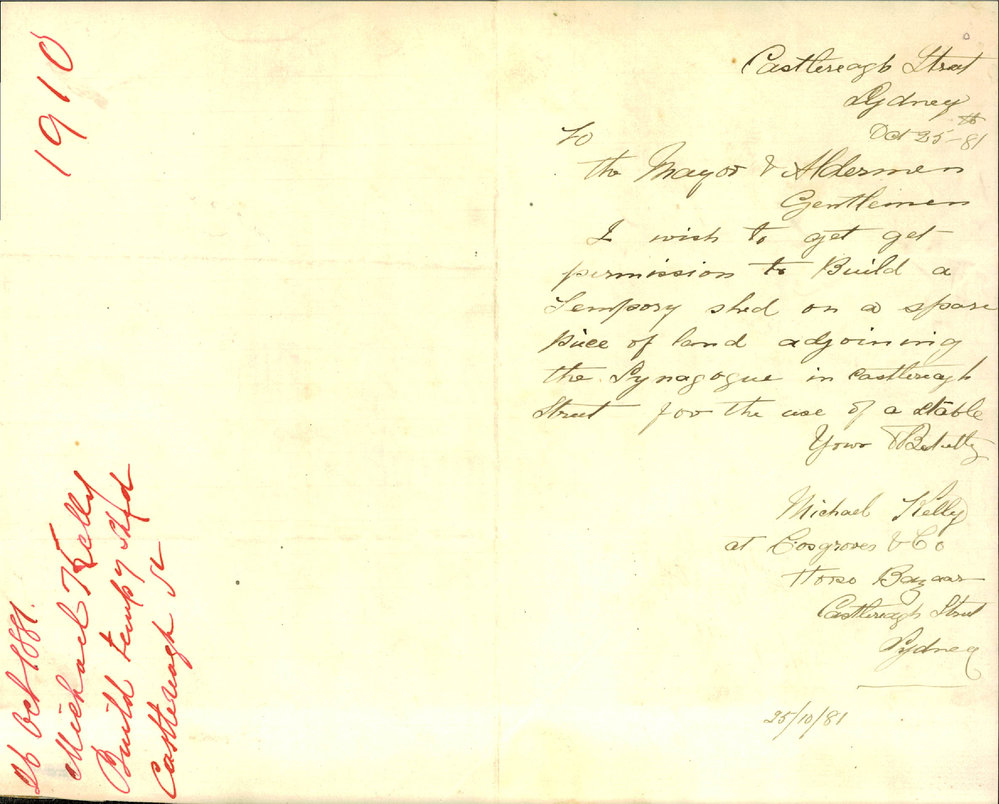 1910
26 Oct 1881.
Michael Kelly
Build temp'y Shed
Castlereagh St
Castlereagh Street
Sydney
Oct 25th-81
To
the Mayor & Aldermen
Gentlemen
I wish to get get
permission to Build a
Tempory shed on a spare
piece of land adjoining
the Synagogue in Castlereagh
Street for the use of a Stable
Yours
Michael Kelly
at Cosgroves & Co
Horse Bazaar
Castlereagh Street
Sydney
25/10/81